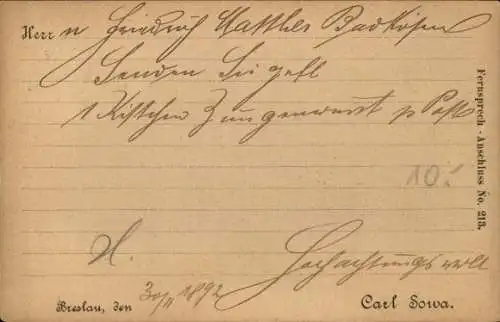 Herrn Heinrich Matthes Bad Kösen
Senden Sie gefl
1 Kistchen Zungenwurst p Post
10.-
Hochachtungsvoll
Breslau, den 30/11 1892 Carl Sowa.
Fernsprech-Anschluss No. 213.